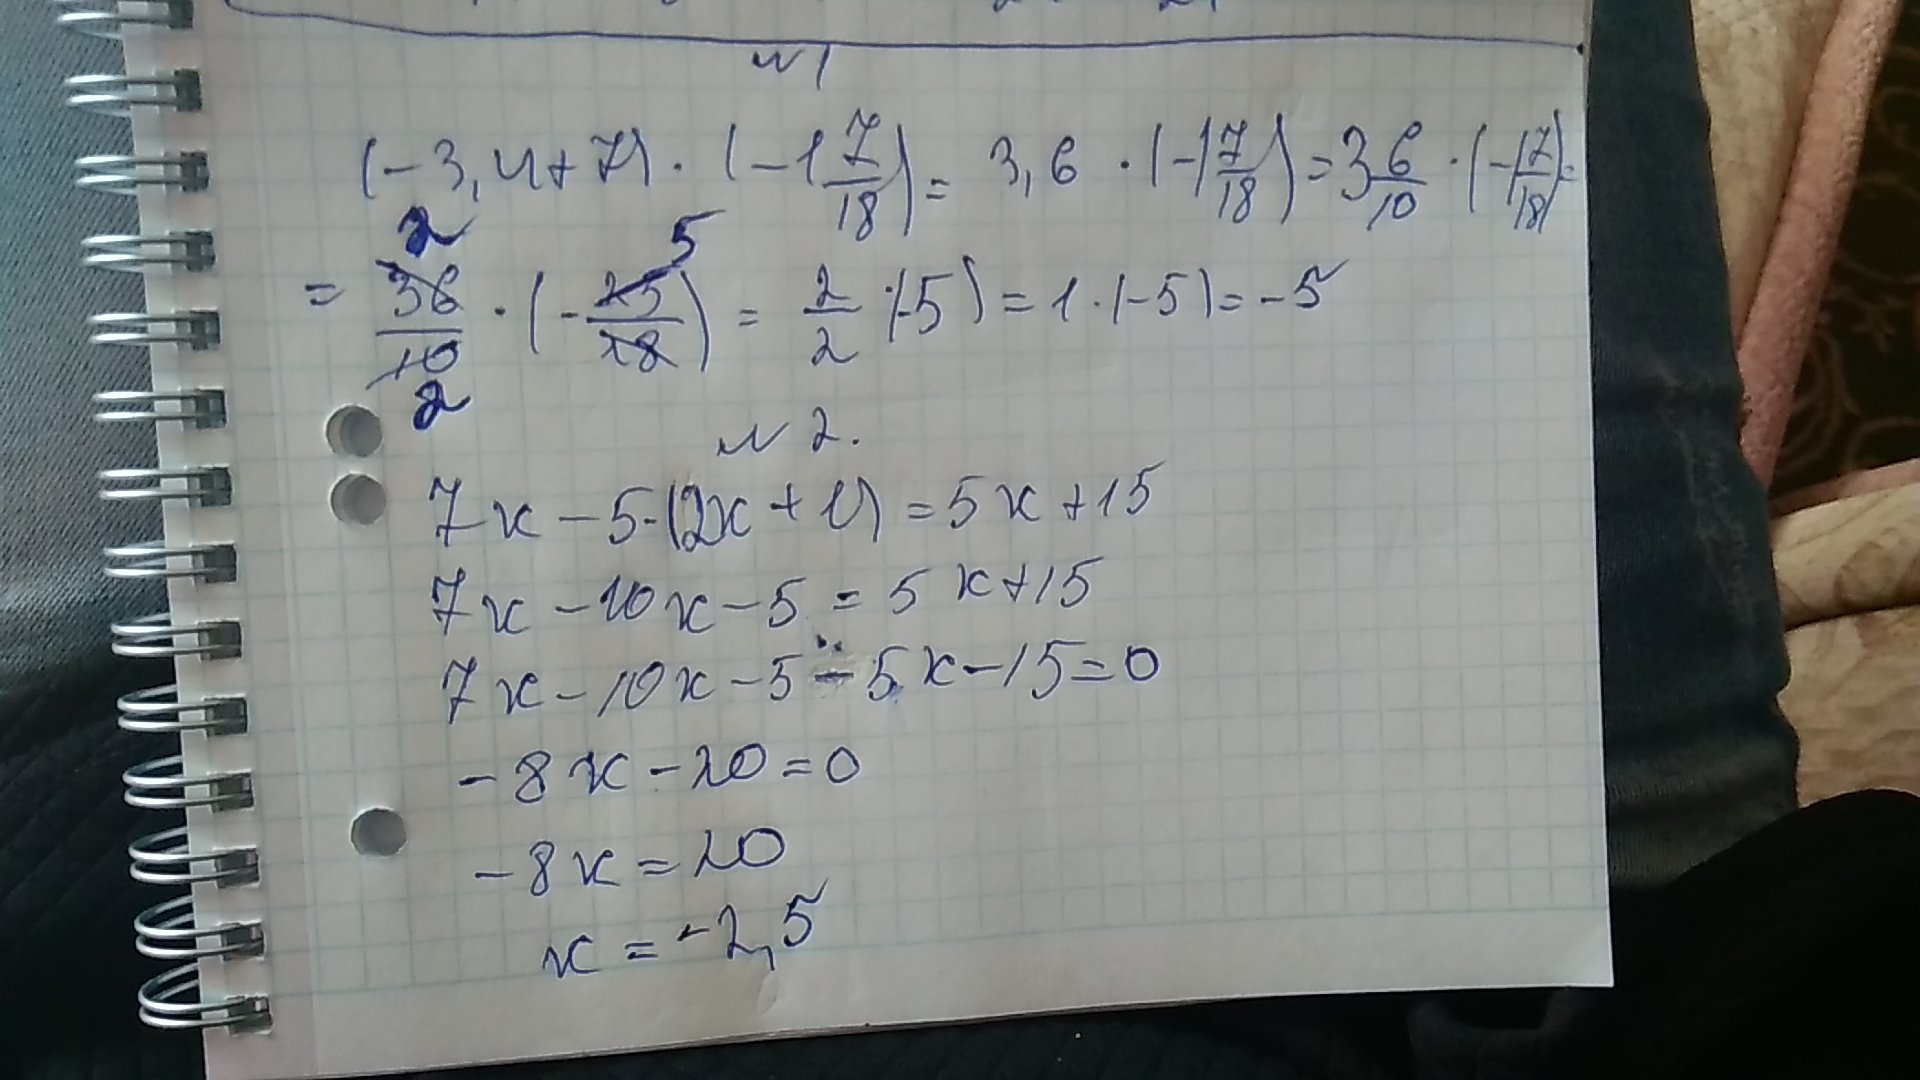 №1
(-3,4+7) · (-1 7/18) = 3,6 · (-1 7/18) = 3 6/10 · (-1 7/18) =
= 36/10 · (-25/18) = 2/2 · (-5) = 1 · (-5) = -5
2 5
2
№2.
7x - 5·(2x + 1) = 5x + 15
7x - 10x - 5 = 5x + 15
7x - 10x - 5 - 5x - 15 = 0
-8x - 20 = 0
-8x = 20
x = -2,5